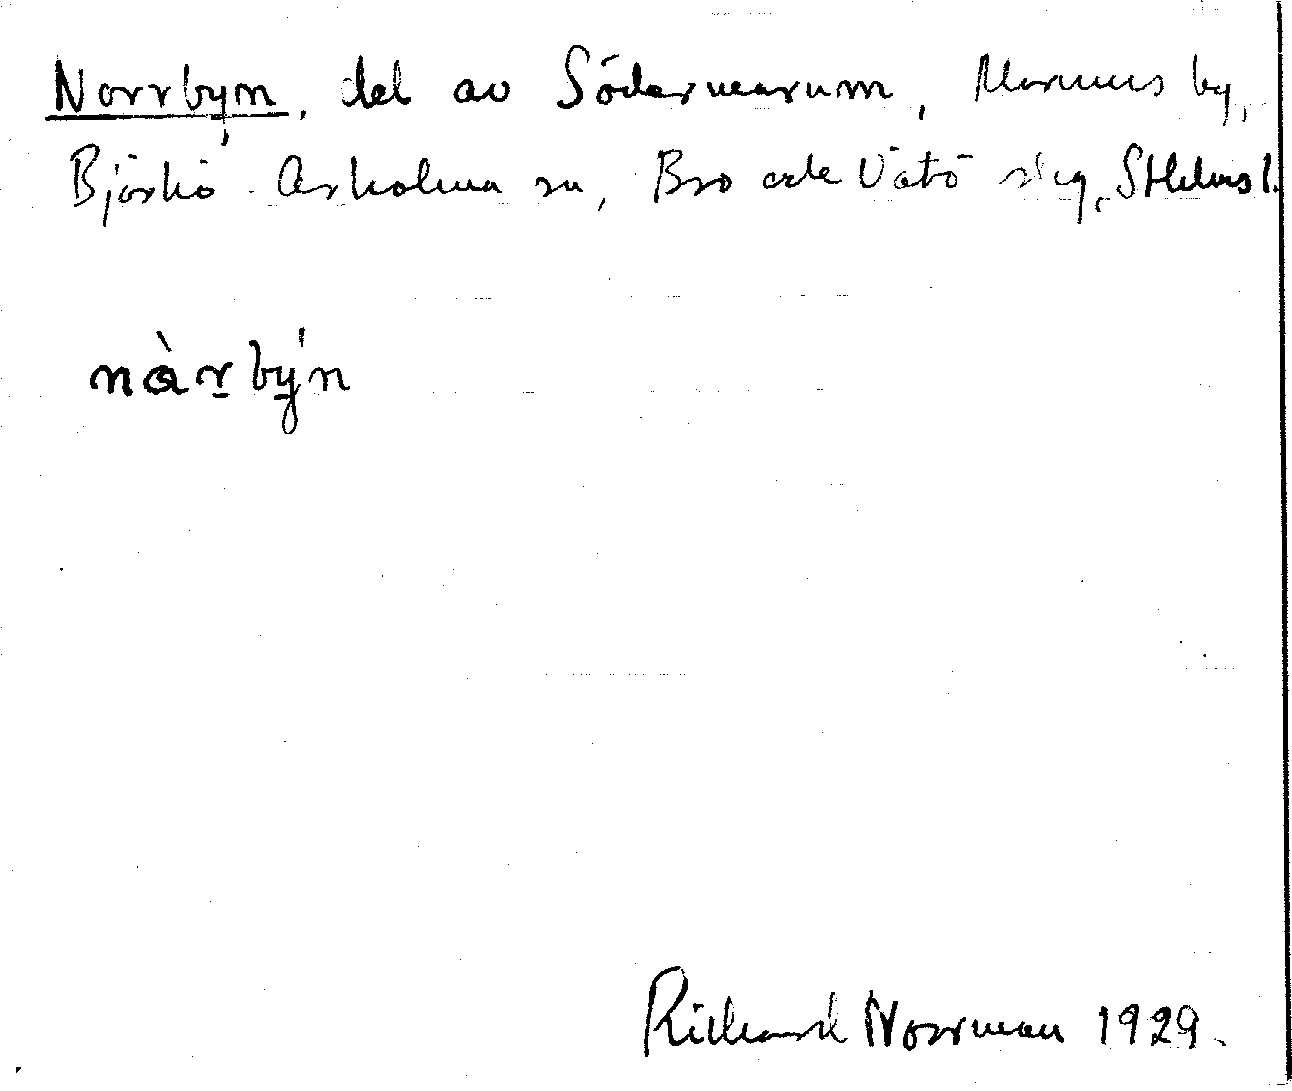 Norrbyn, del av Södermarum, Marums by,
Björkö-Arholma sn, Bro och Vätö slg, Sthlms l.
nàrbýn
Richard Norrman 1929.